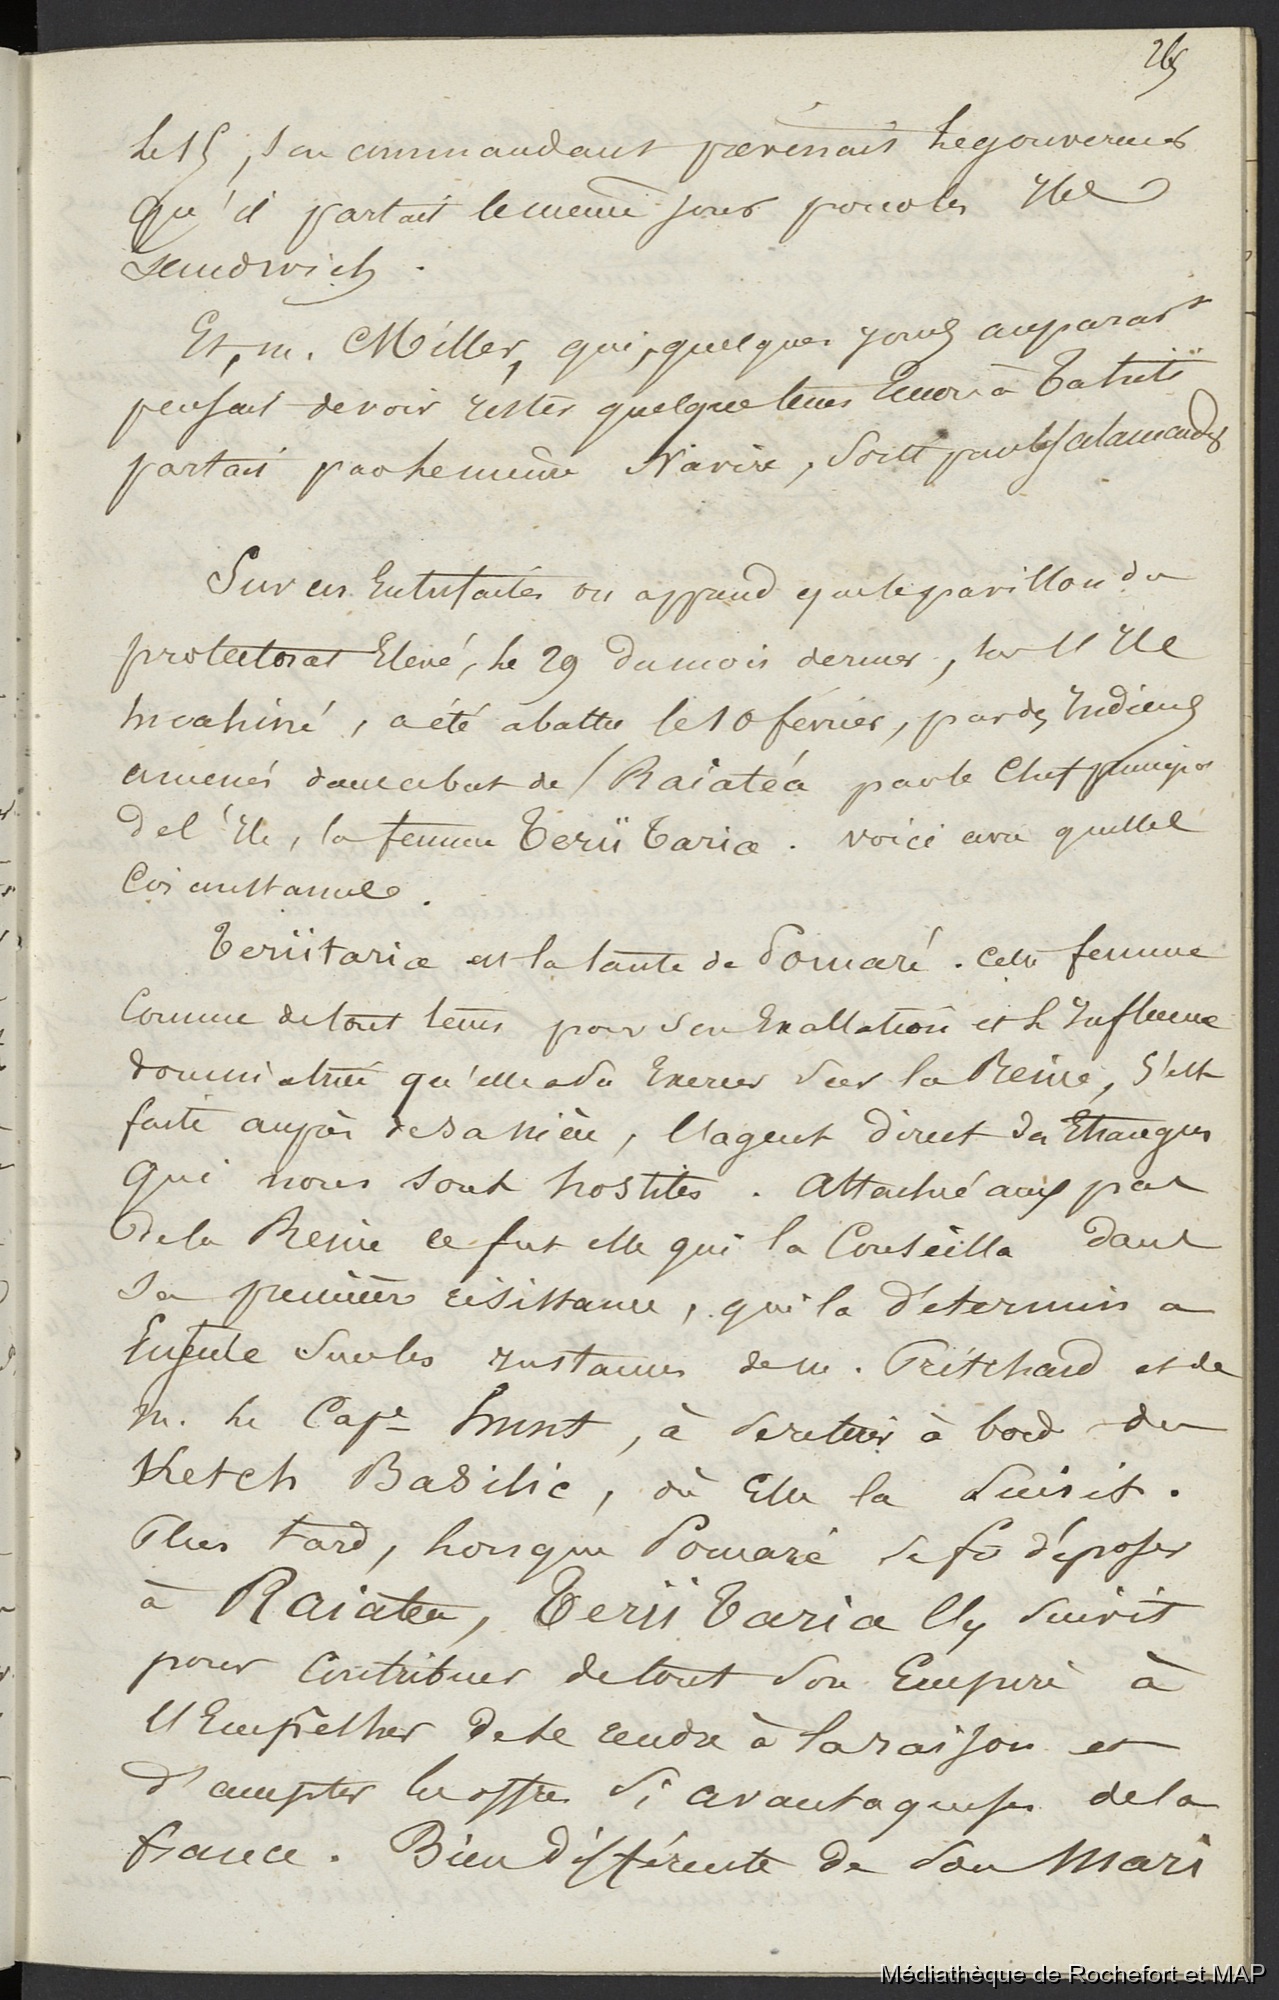 265
Le 15, son commandant prévenait le gouverneur
qu'il partait le même jour pour les Iles
Sandwich.
Et, m. Miller, qui, quelques jours auparavt
pensait devoir rester quelque tems Encor à Tahiti
partait par le meme Navire, soitt par la Salamandes
Sur ces Entrefaites on apprend que le pavillon du
protectorat Elevé, le 29 du mois dernier, sur l'Ile
huahiné, a été abattu le 10 février, par des Indiens
amenés dans ce but de Raiatéa par le Chef principal
de l'Ile, la femme Terii Taria. voici avec quelles
Circonstances.
Teriitaria est la tante de Pomaré. cette femme
Connue de tout tems pour son Exaltation et l'Influence
dominatrice qu'elle a su Exercer sur la Reine, s'est
faite auprès de sa nièce, l'agent direct des Etrangers
qui nous sont hostiles. Attachée aux pas
de la Reine ce fut elle qui la Conseilla dans
sa première résistance, qui la détermina
Ensuite sur les Instances de m. Pritchard et de
m. le Cape hunt, à se retirer à bord du
Ketch Basilic, où Elle la suivit.
Plus tard, lorsque Pomaré se fit déposer
à Raiatea, Terii Taria l'y suivit
pour contribuer de tout son Empire à
l'Empêcher de se rendre à la raison et
d'accepter les offres si avantageuses de la
france. Bien différente de son mari
Médiathèque de Rochefort et MAP